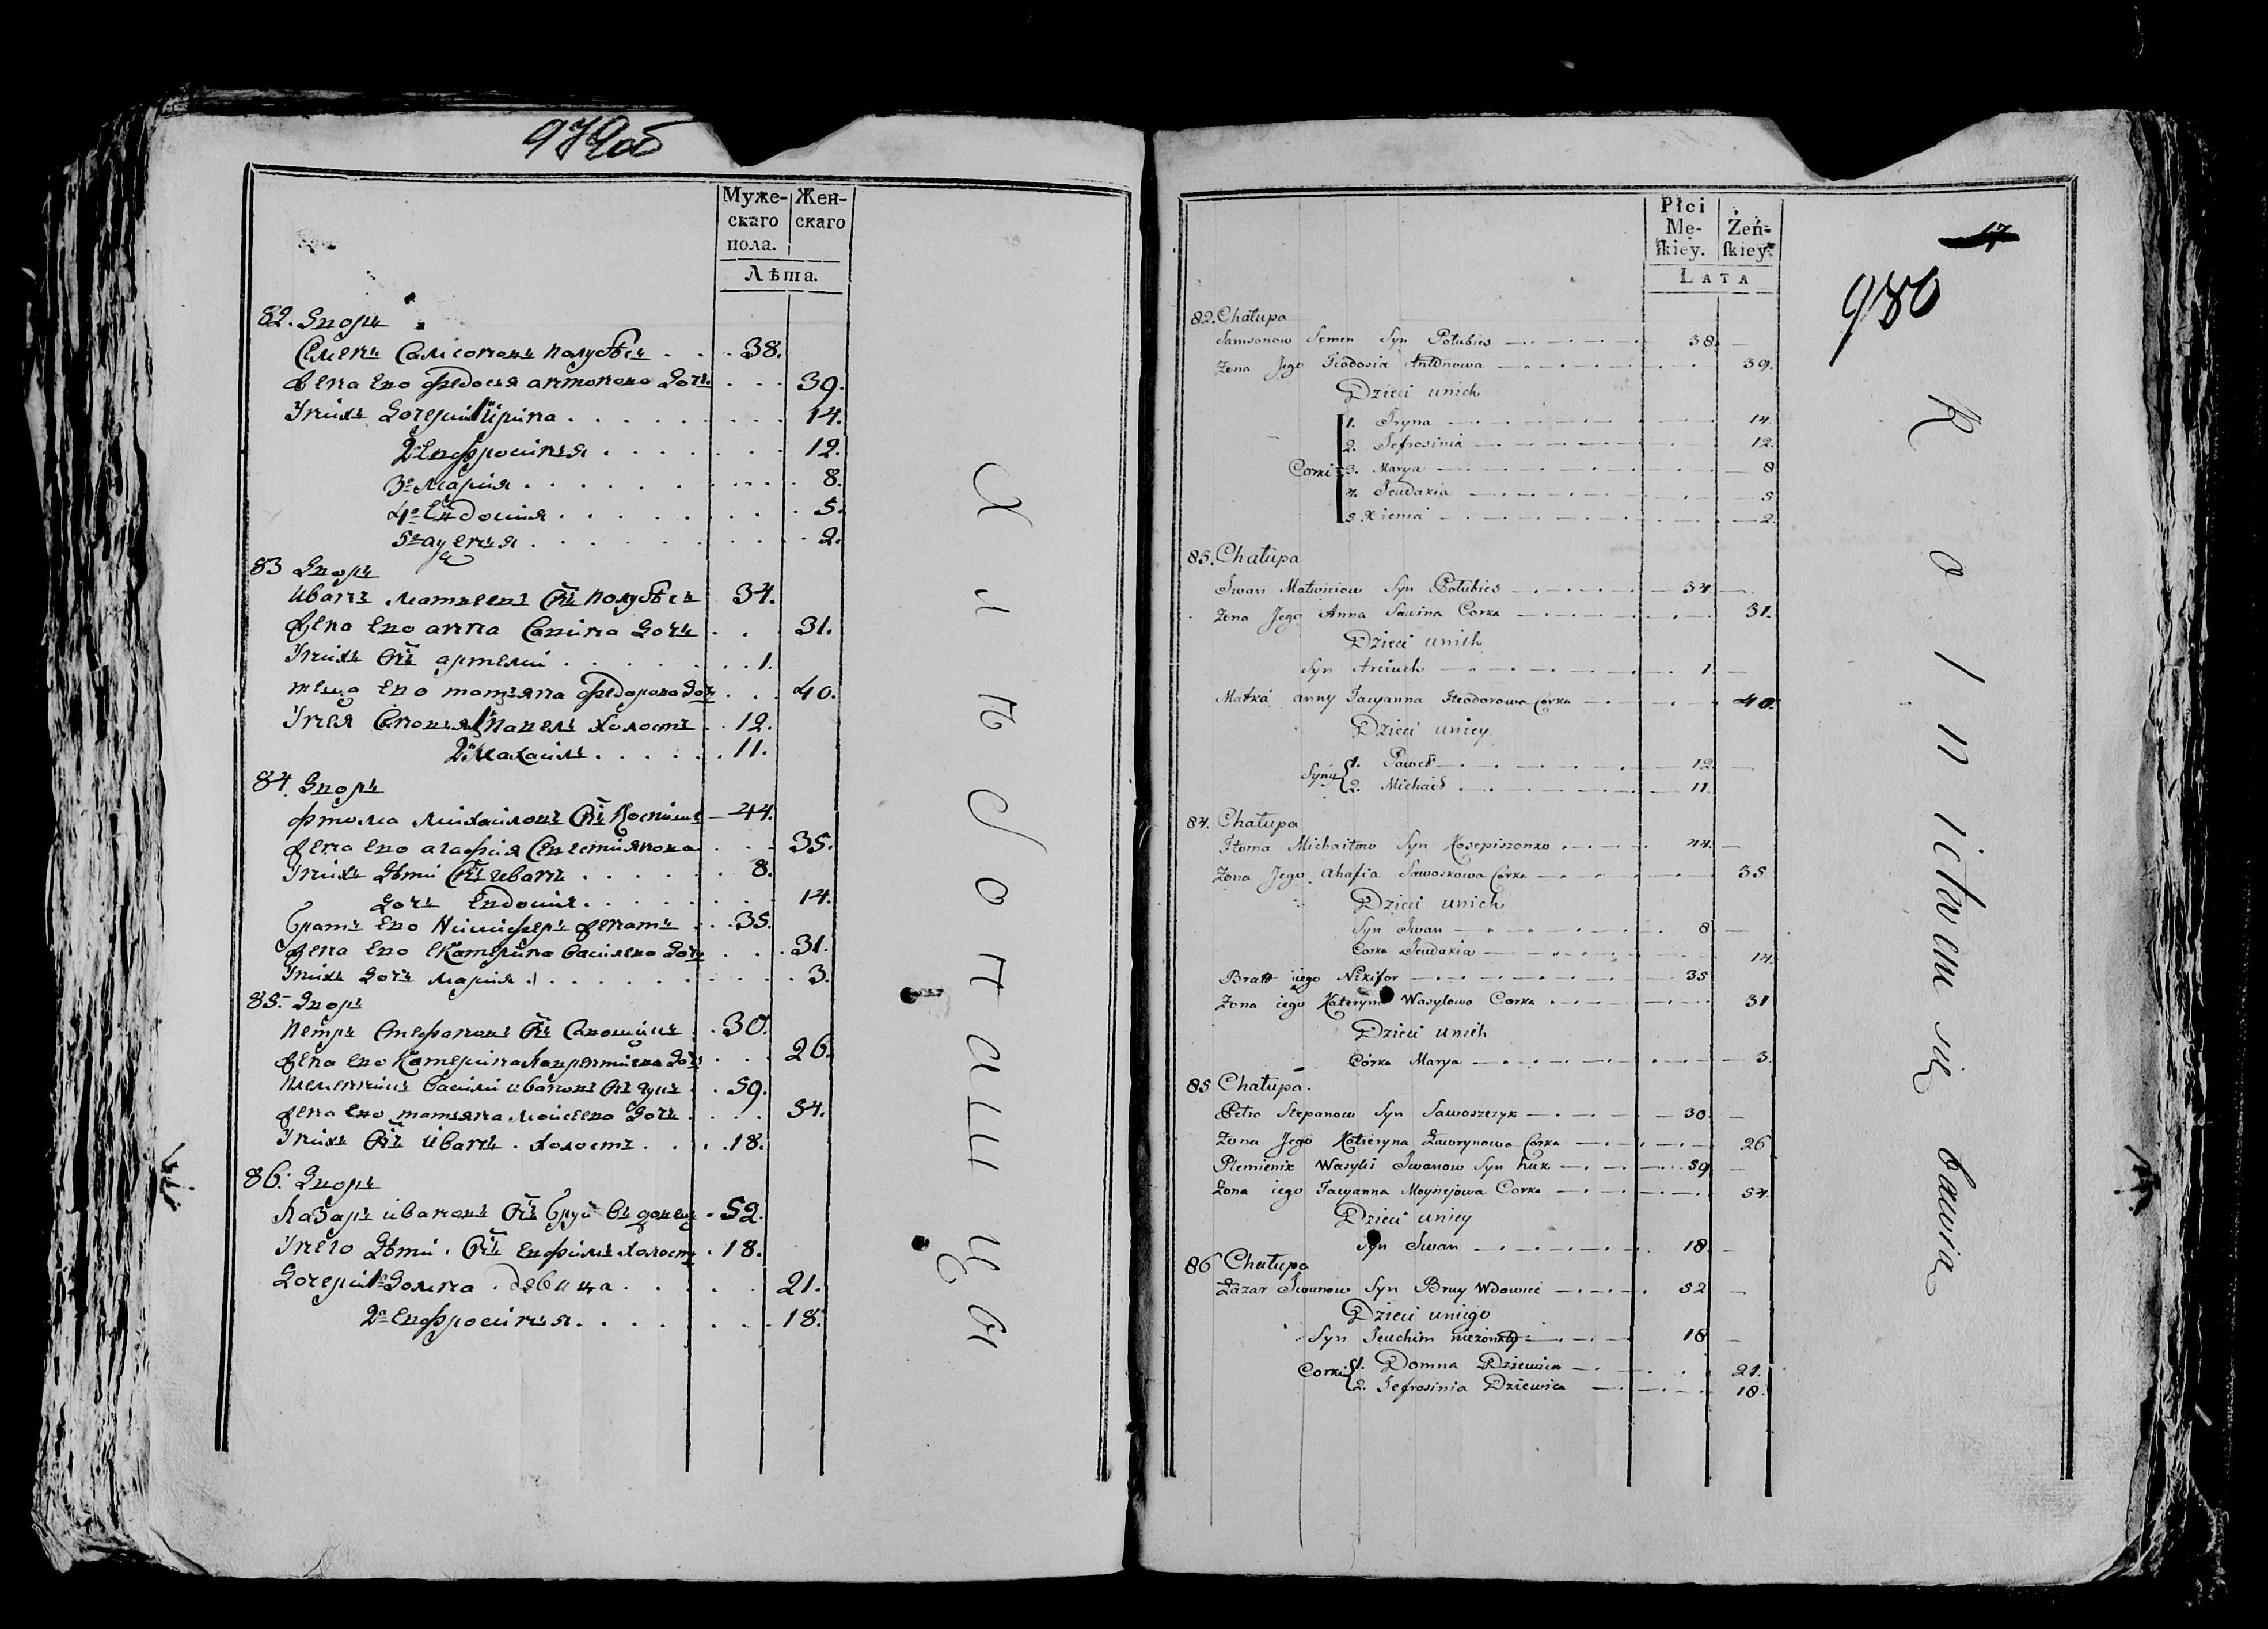 979об
Муже-
скаго
пола.
Жен-
скаго
Лѣта.
82. Дворъ
Семенъ Самсоновъ полубѣсъ 38.
жена ево федосия антонова дочь 39.
У нихъ дочери 1 ирина 14.
2 Евфросиния 12.
3 Мария 8.
4 Евдокия 5.
5 2.
83 Дворъ
Иванъ матвеевъ сынъ полубѣсъ 34.
жена ево анна Савина дочь 31.
У нихъ сынъ артемии 1.
теща ево татяна федорова дочь 40.
У нея Сыновья 1 Павелъ холостъ 12.
2 Михаилъ 11.
84. Дворъ
фтома михаиловъ сынъ 44.
жена ево агафия 35.
У нихъ дѣти сынъ иванъ 8.
дочь Евдокия 14.
братъ ево Никифоръ женатъ 35.
жена ево екатерина василева дочь 31.
У нихъ дочь мария 3.
85. Дворъ
Петръ стефановъ сынъ 30.
жена ево Катерина дочь 26.
племенникъ василии ивановъ сынъ 59.
жена ево татяна моисеева дочь 54.
У нихъ сынъ иванъ холостъ 18.
86. Дворъ
лазарь ивановъ сынъ бруй вдовецъ 52.
У него дѣти сынъ холостъ 18.
дочери 1 домна девица 21.
2 Евфросиния 18.
Хлѣбопашцы
Płci
Mę-
skiey.
Żeń-
skiey.
LATA
17
980
82. Chałupa
Samsonow Semen Syn Połubies 38.
Zona Jego Teodosia Antonowa 39.
Dzieci unich
Corki
1. Iryna 14
2. Jefrosinia 12.
3. Marya 8
4. Jeudakia 5
5. Xienia 2.
83. Chałupa
Jwan Matwieiow Syn Połubies 34
Zona Jego Anna Sawina Corka 31.
Dzieci unich
Syn 1.
Matka anny Tacyanna Fteodorowa Corka 40.
Dzieci uniey
Syny
1. Paweł 12.
2. Michaił 11.
84. Chałupa
Ftoma Michaiłow Syn Kosopiszonko 44.
Zona Jego Ahafia Corka 35
Dzieci unich
Syn Jwan 8
Corka Jeudakia 14
Bratt iego Nikifor 35
Zona iego Kateryna Wasylowa Corka 31
Dzieci unich
Córka Marya 3.
85 Chałupa.
Petro Stepanow Syn Sawoszczyk 30.
Zona Jego Katieryna Ławrynowa Corka 26
Plemienik Wasyli Jwanow Syn 59
Zona iego Tacyanna Moysejowa Corka 54.
Dzieci uniey
Syn Jwan 18.
86 Chałupa
Łazar Jwanow Syn Bruy Wdowiec 52
Dzieci uniego
Syn Jeuchim niezonaty 18
Corki
1. Domna Dziewica 21.
2. Jefrosinia Dziewica 18.
Rolnictwem się bawią